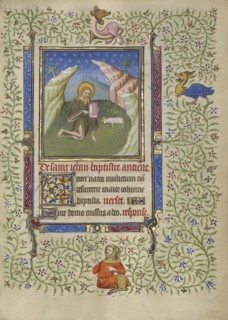 De saint iehan baptiste. antiene.
Inter natos mulierum nō
surrexit maior iohanne
baptista. verset.
Fuit homo missus a deo. respons.